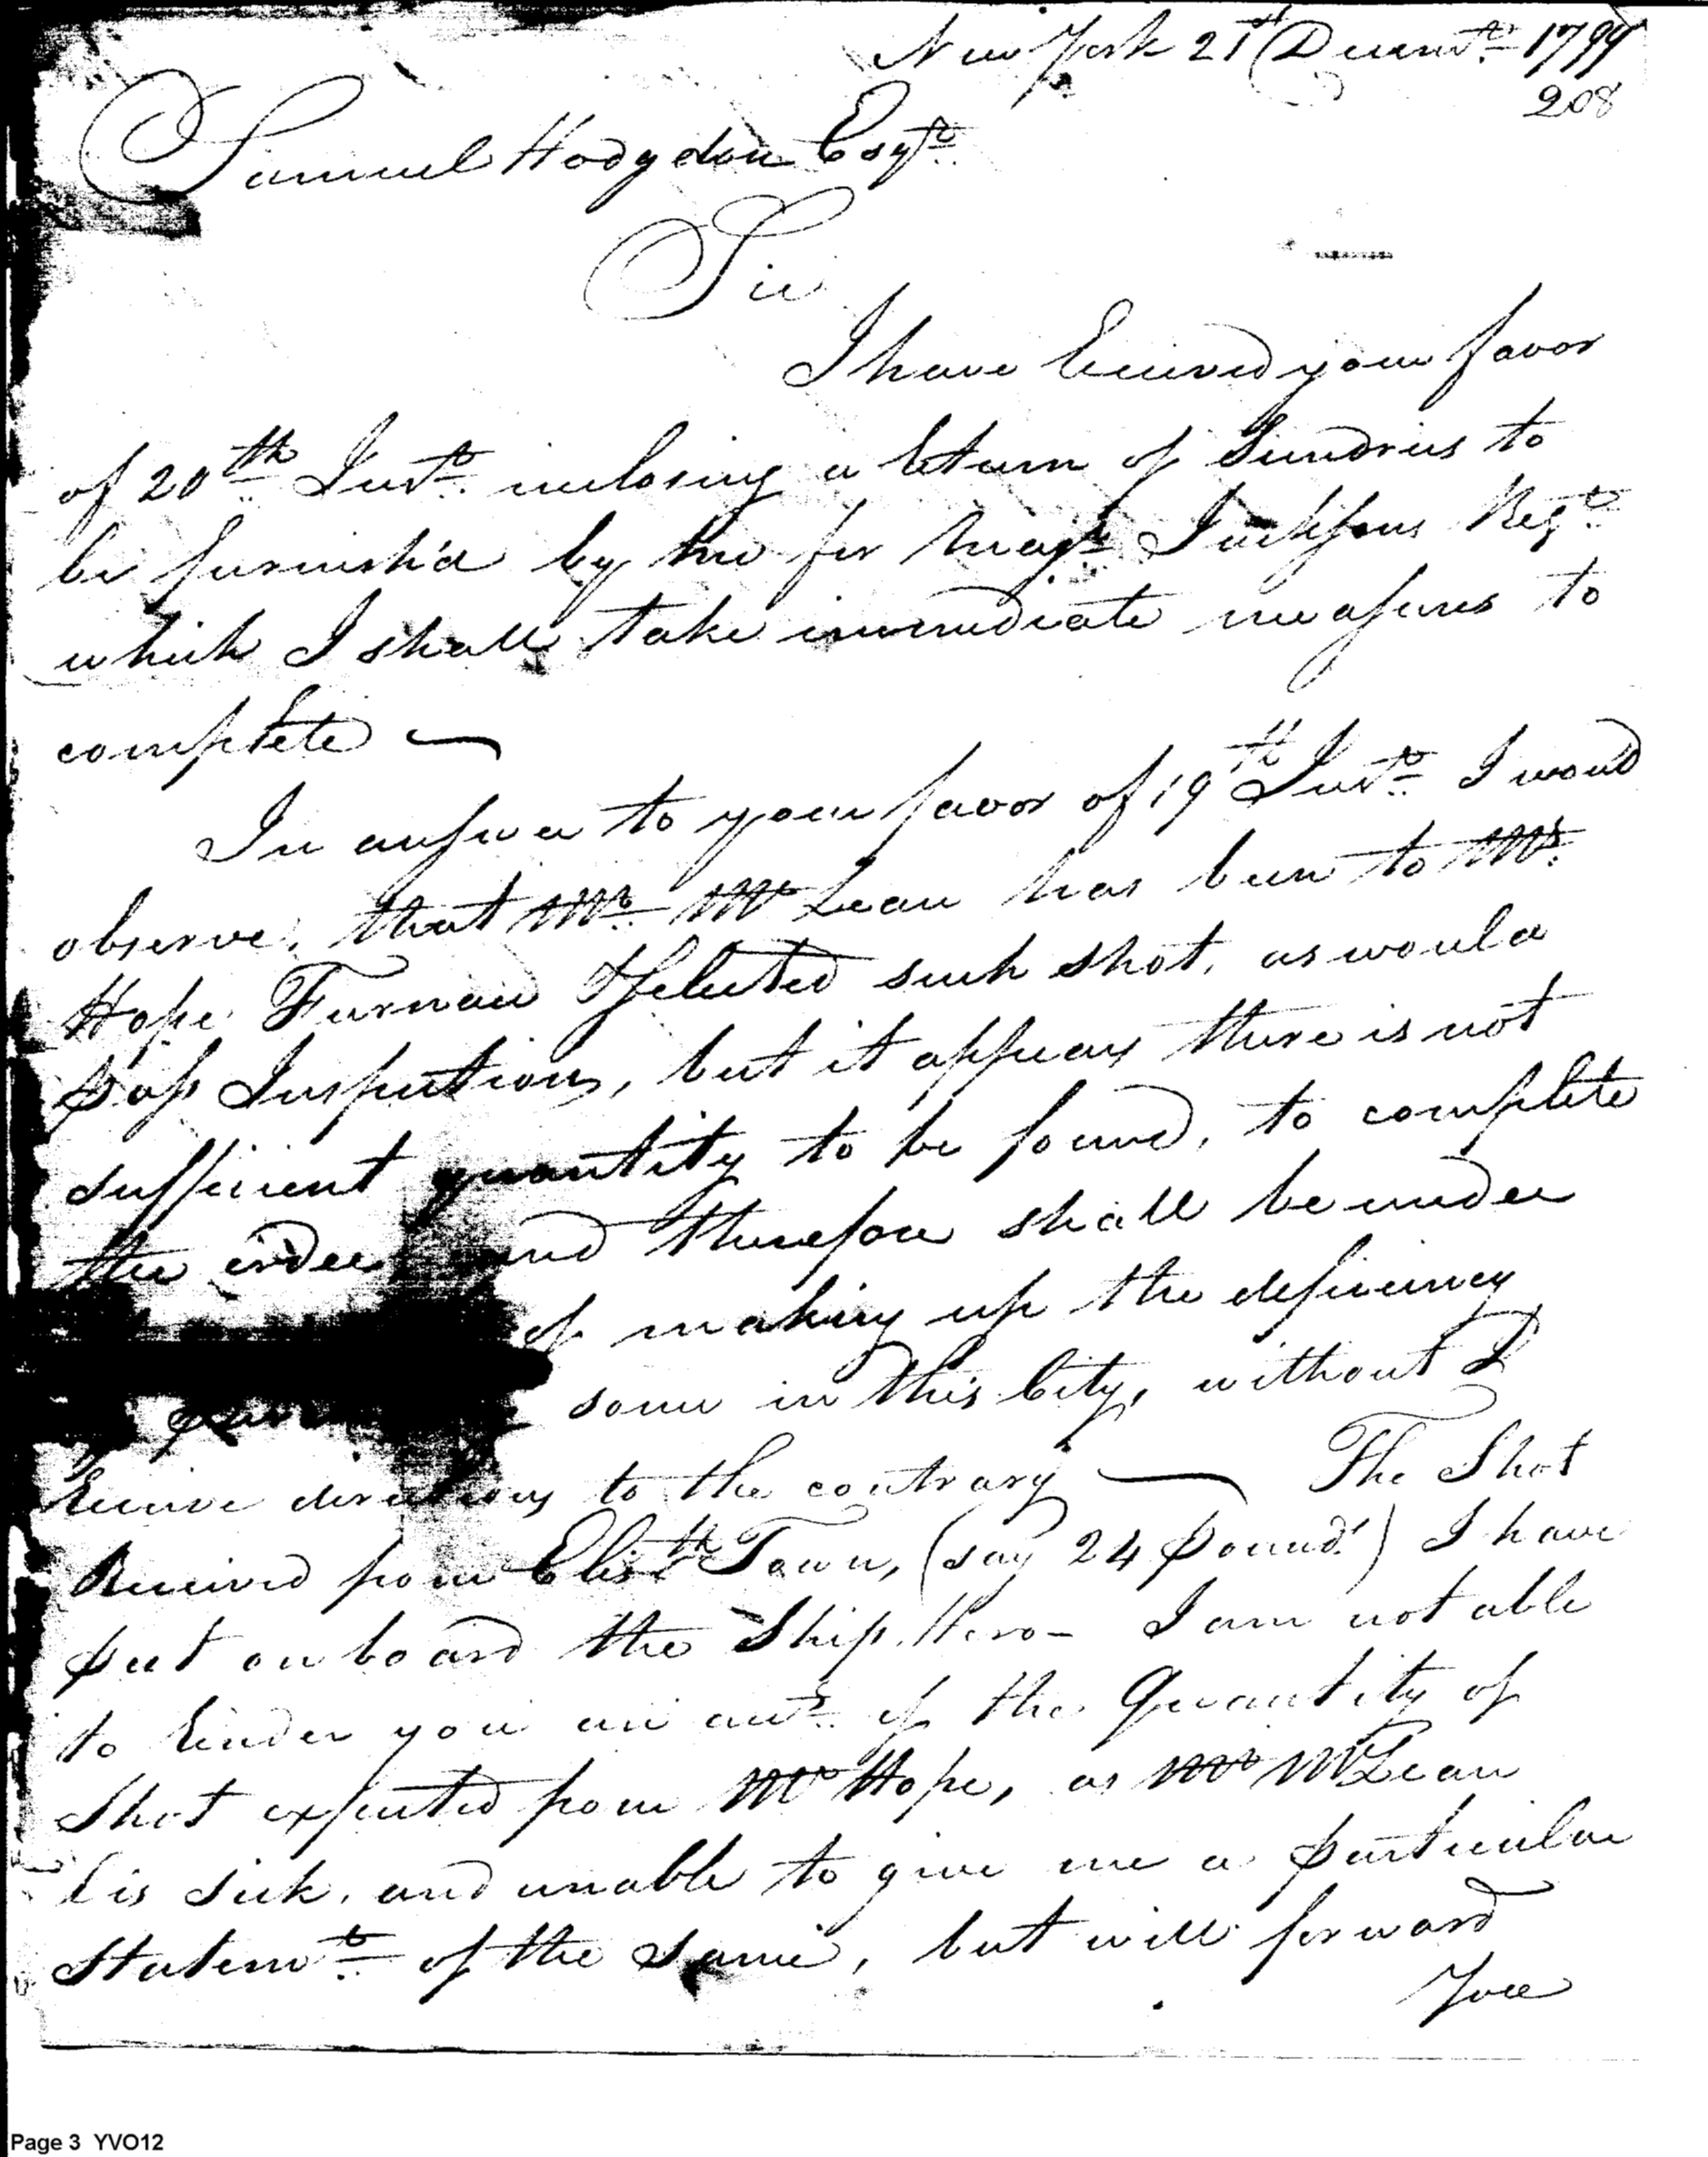 New York 21st Decemr. 1799
208
Samuel Hodgdon Esqr.
Sir
I have Received your favor
of 20th Inst. inclosing a Return of Sundries to
be furnish'd by me for Majr. Jackson's Regt.
which I shall take immediate measures to
complete —
In answer to your favor of 19th Inst. I would
observe, that Mr. McLean has been to Mr.
Hope Furnace & selected such shot, as would
pass Inspection, but it appears there is not
sufficient quantity to be found, to complete
the order and therefore shall be under
of making up the deficiency
some in this City, without I
Receive directions to the contrary — The Shot
Received from Elisth Town, (say 24 pound.) I have
put on board the Ship Hero - I am not able
to Render you an acct. of the Quantity of
Shot expected from Mt Hope, as Mr McLean
is sick, and unable to give me a particular
Statemt. of the same, but will forward
You
Page 3 YVO12